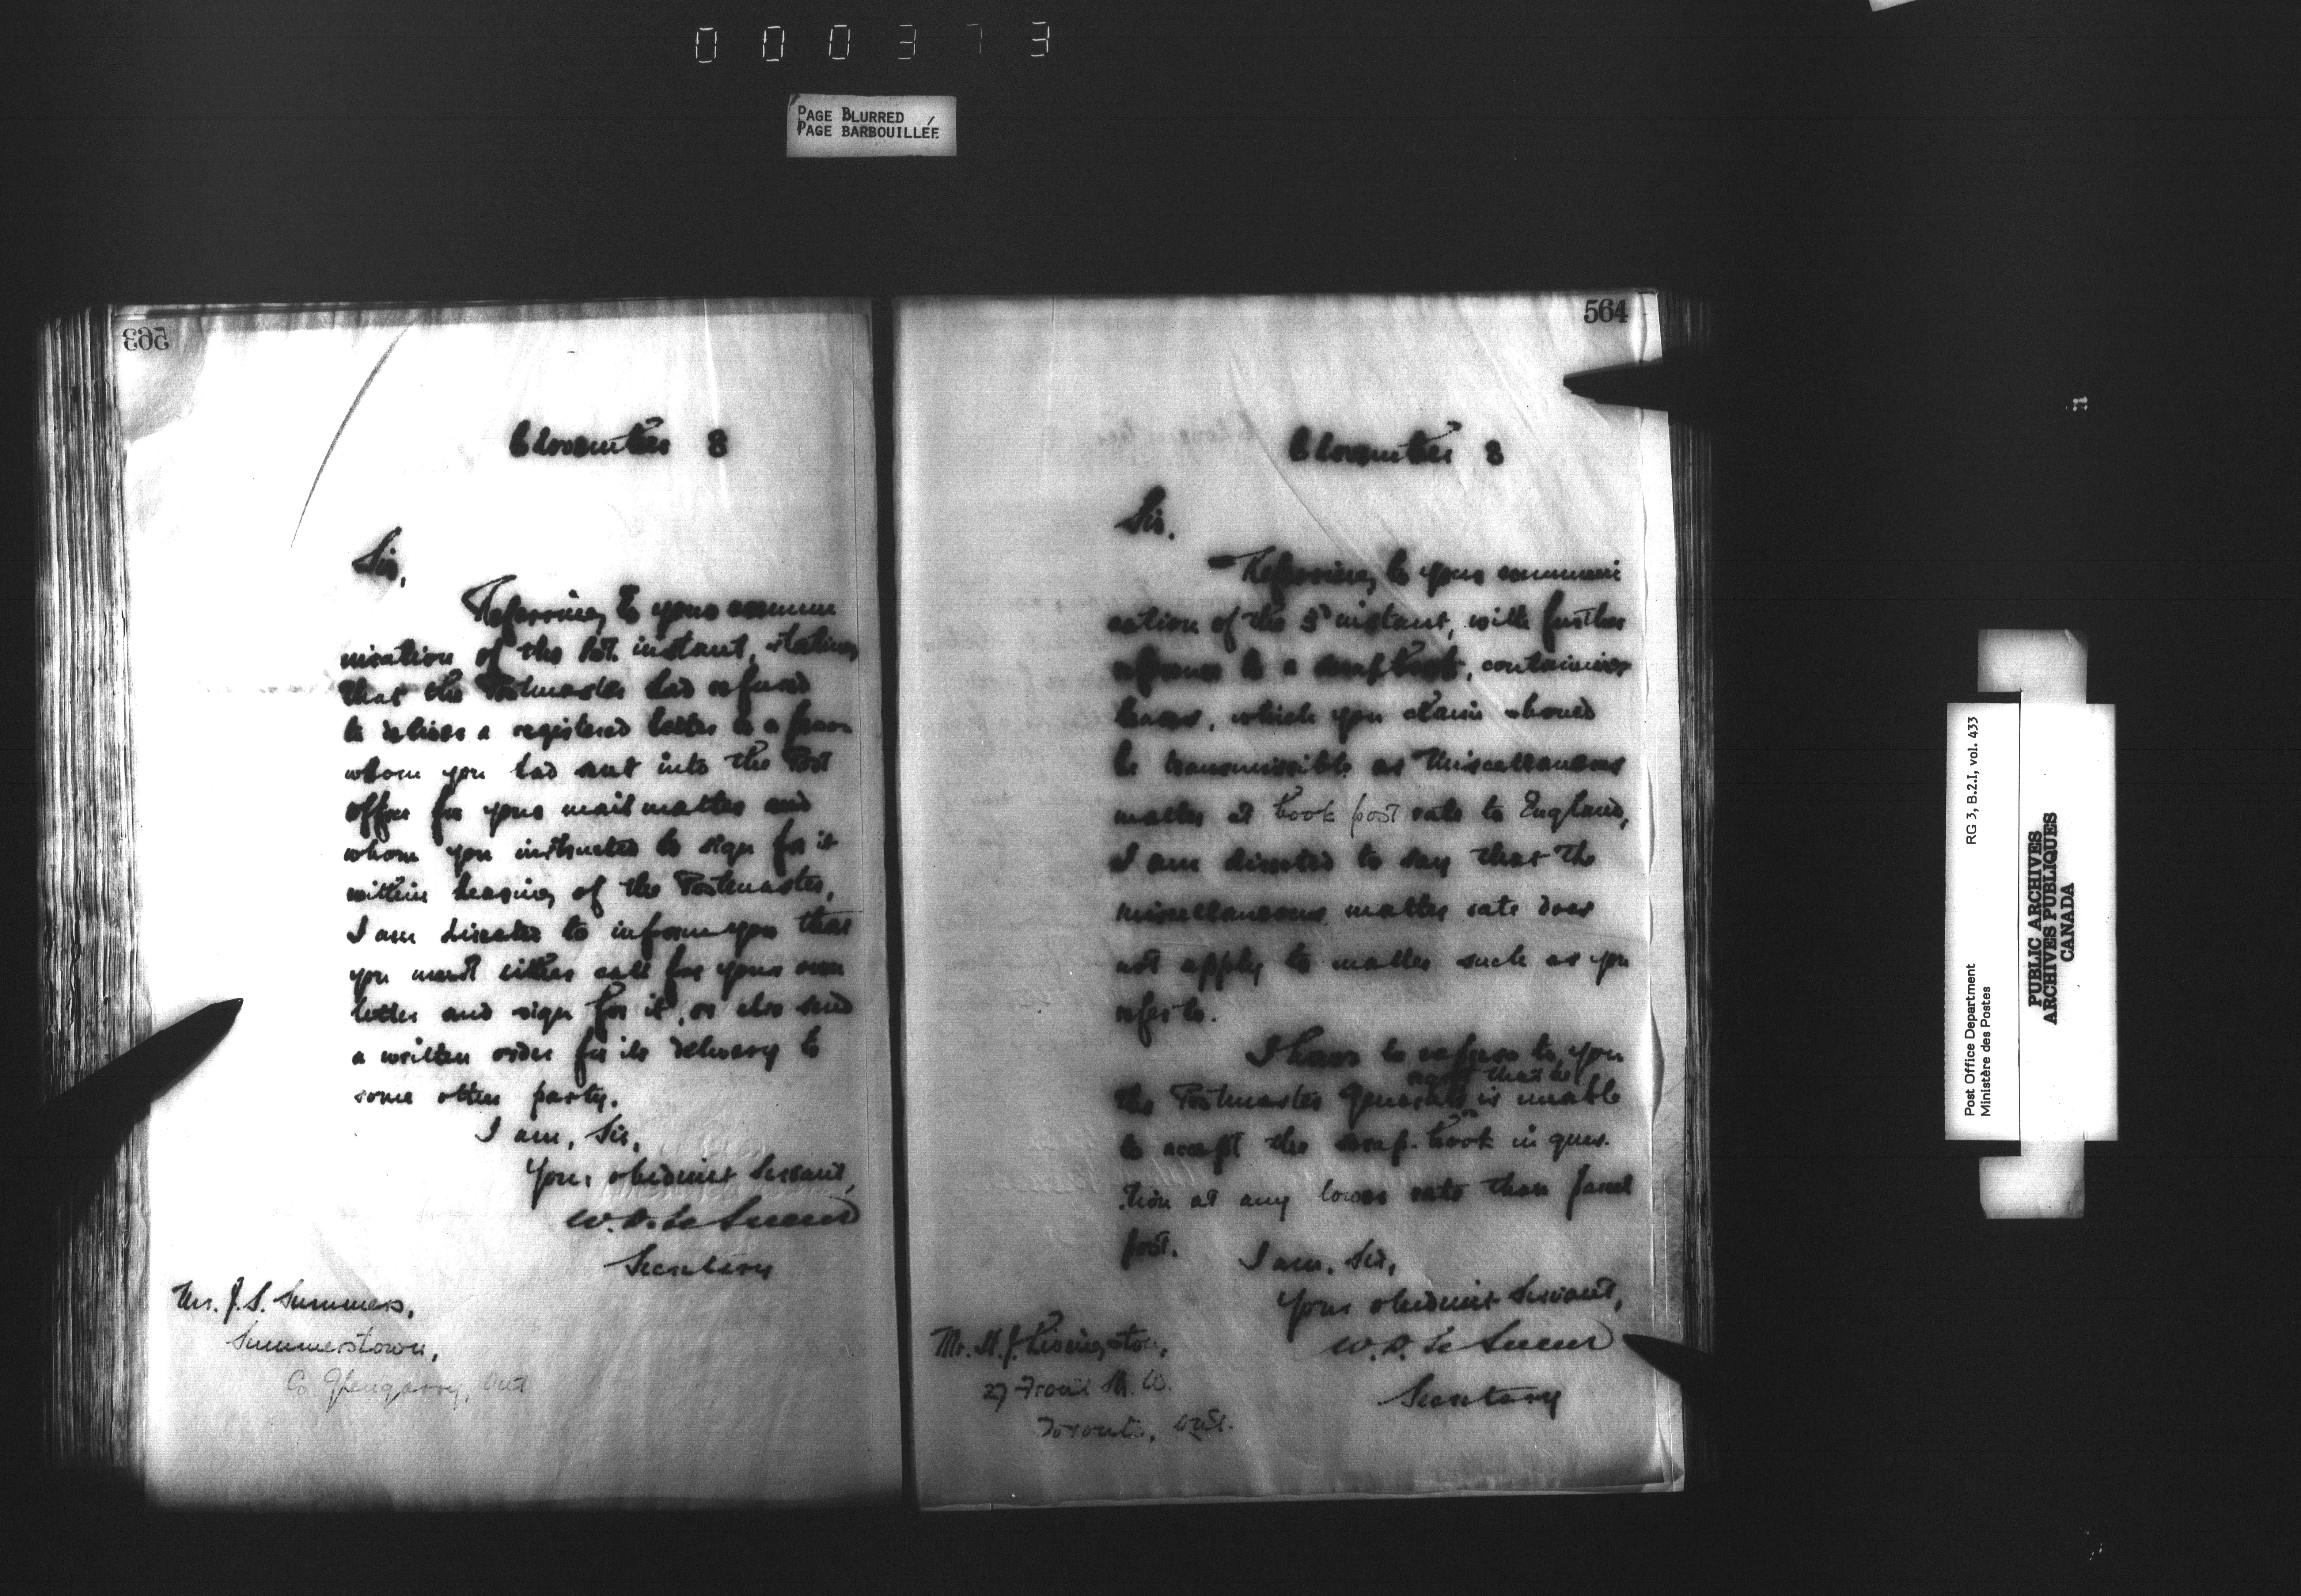 000373
PAGE BLURRED
PAGE BARBOUILLÉE
563
November 8
Sir,
Referring to your commu
nication of the 1st. instant, stating
that the Postmaster had refused
to deliver a registered letter to a person
whom you had sent into the Post
office for your mail matter and
whom you instructed to sign for it
within hearing of the Postmaster,
I am directed to inform you that
you must either call for your own
letter and sign for it, or else send
a written order for its delivery to
some other party.
I am, Sir,
Your obedient Servant,
W. D. Le Sueur
Secretary
Mr. J. S. Summers,
Summerstown,
Co. Glengarry, Ont
564
November 8
Sir,
Referring to your communi
cation of the 3d instant, with further
reference to a scrap book, containing
leaves, which you claim should
be transmissible as Miscellaneous
matter at book post rate to England,
I am directed to say that the
miscellaneous matter rate does
not apply to matter such as you
refer to.
I have to to you
that he
the Postmaster General is unable
to accept the scrap-book in ques-
tion at any lower rate than parcel
post.
I am, Sir,
Your obedient Servant,
W. D. Le Sueur
Secretary
Mr. H. J. Livingston,
27 Front St. W.
Toronto, Ont.
Post Office Department
Ministère des Postes
RG 3, B.2.I, vol. 433
PUBLIC ARCHIVES
ARCHIVES PUBLIQUES
CANADA